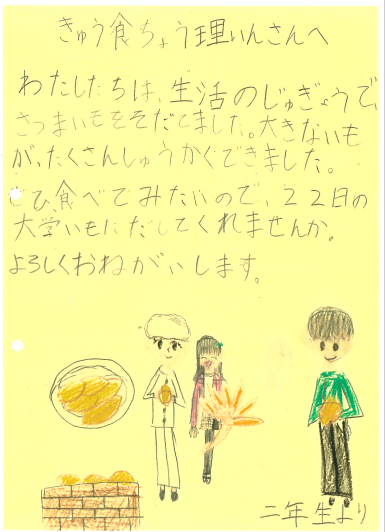 きゅう食ちょう理いんさんへ
わたしたちは、生活のじゅぎょうで、
さつまいもをそだてました。大きないも
が、たくさんしゅうかくできました。
ぜひ食べてみたいので、22日の
大学いもにだしてくれませんか。
よろしくおねがいします。
二年生より